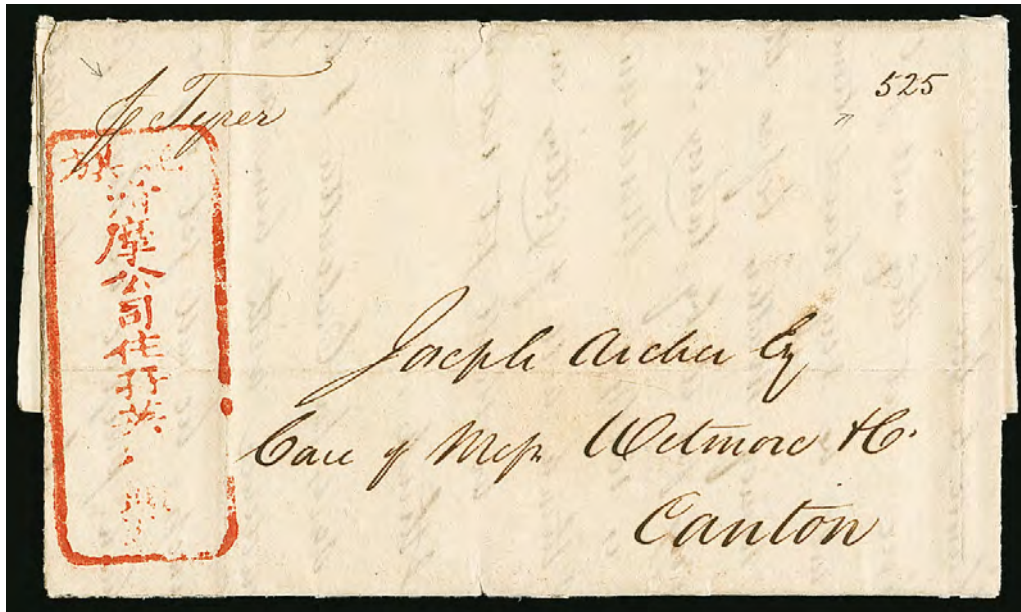 p Typer
525
摩公司住孖英
Joseph Archer Esq
Care of Messrs Wetmore & Co.
Canton